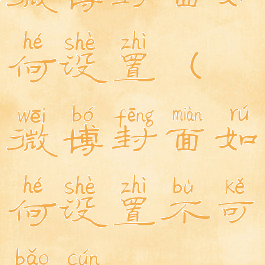 微博封面如
hé shè zhì
何设置（
wēi bó fēng miàn rú
微博封面如
hé shè zhì bù kě
何设置不可
bǎo cún